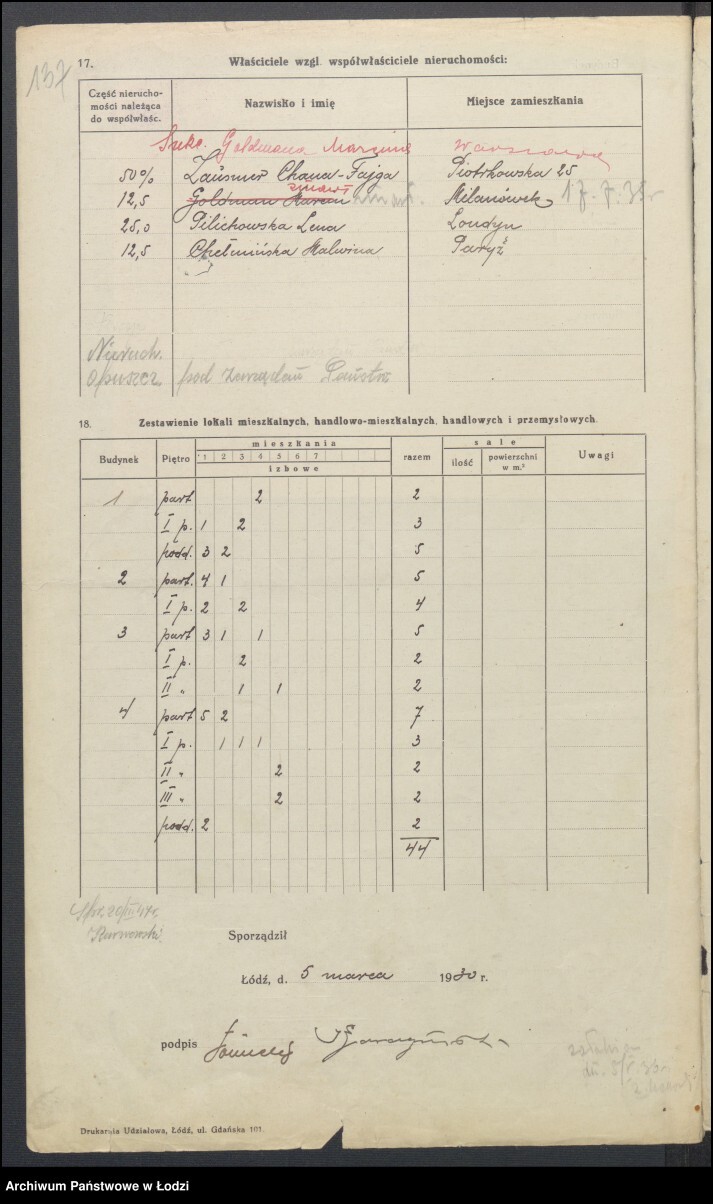 137
17. Właściciele wzgl. współwłaściciele nieruchomości:
Część nierucho-
mości należąca
do współwłaśc.
Nazwisko i imię
Miejsce zamieszkania
Sukc. Goldmana Marcina Warszawa
50% Zausmer Chana-Fajga Piotrkowska 25
zmarł
12,5 Goldman Marcin zmarł. Milanówek 17.7.35r
25,0 Pilichowska Lena Londyn
12,5 Chełmińska Malwina Paryż
Nieruch.
opuszcz. pod zarządem Państw.
18. Zestawienie lokali mieszkalnych, handlowo-mieszkalnych, handlowych i przemysłowych.
Budynek Piętro mieszkania razem sale Uwagi
1 2 3 4 5 6 7
izbowe
ilość powierzchni w m.²
1 part 2 2
I p. 1 2 3
podd. 3 2 5
2 part. 4 1 5
I p. 2 2 4
3 part 3 1 1 5
I p. 2 2
II „ 1 1 2
4 part 5 2 7
I p. 1 1 1 3
II „ 2 2
III „ 2 2
podd. 2 2
44
Sporządził
Łódź, d. 5 marca 1930 r.
podpis
Drukarnia Udziałowa, Łódź, ul. Gdańska 101.
Archiwum Państwowe w Łodzi